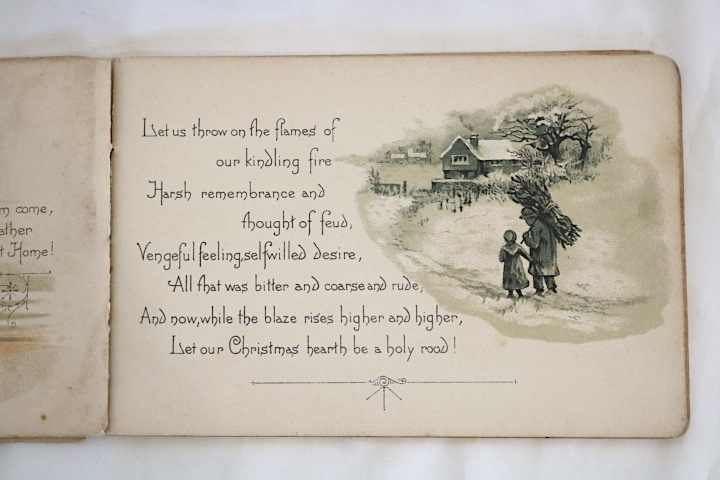 m come,
ather
t Home!
Let us throw on the flames of
our kindling fire
Harsh remembrance and
thought of feud,
Vengeful feeling, selfwilled desire,
All that was bitter and coarse and rude,
And now, while the blaze rises higher and higher,
Let our Christmas hearth be a holy rood!